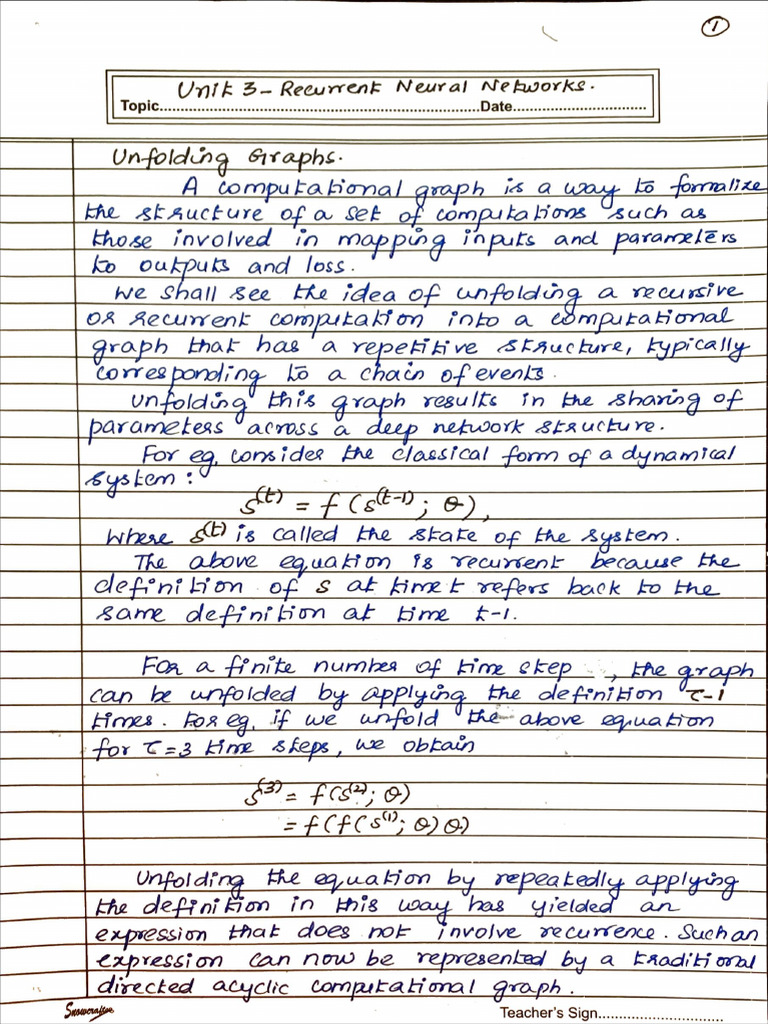 1
Unit 3 - Recurrent Neural Networks.
Topic..........Date..........
Unfolding Graphs.
A computational graph is a way to formalize
the structure of a set of computations such as
those involved in mapping inputs and parameters
to outputs and loss.
We shall see the idea of unfolding a recursive
or recurrent computation into a computational
graph that has a repetitive structure, typically
corresponding to a chain of events.
Unfolding this graph results in the sharing of
parameters across a deep network structure.
For eg. consider the classical form of a dynamical
system:
s^(t) = f(s^(t-1); θ),
Where s^(t) is called the state of the system.
The above equation is recurrent because the
definition of s at time t refers back to the
same definition at time t-1.
For a finite number of time step , the graph
can be unfolded by applying the definition τ-1
times. For eg, if we unfold the above equation
for τ=3 time steps, we obtain
s^(3) = f(s^(2); θ)
= f(f(s^(1); θ) θ)
Unfolding the equation by repeatedly applying
the definition in this way has yielded an
expression that does not involve recurrence. Such an
expression can now be represented by a traditional
directed acyclic computational graph.
Teacher's Sign..........